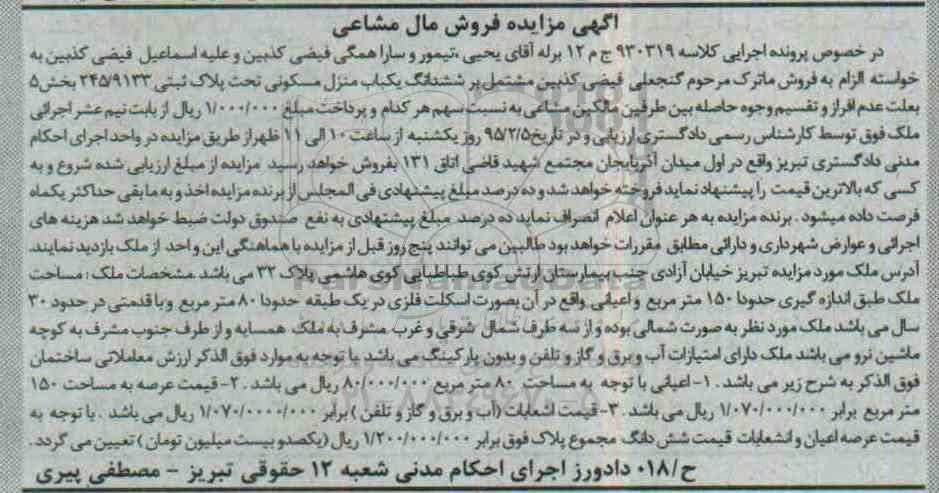 آگهی مزایده فروش مال مشاعی
در خصوص پرونده اجرایی کلاسه ۹۳۰۳۱۹ ج م ۱۲ برله آقای یحیی ،تیمور و سارا همگی فیضی کذبین و علیه اسماعیل فیضی کذبین به
خواسته الزام به فروش ماترک مرحوم گنجعلی فیضی کذبین مشتمل بر ششدانگ یکباب منزل مسکونی تحت پلاک ثبتی ۲۴۵/۹۱۳۳ بخش۵
بعلت عدم افراز و تقسیم وجوه حاصله بین طرفین مالکین مشاعی به نسبت سهم هر کدام و پرداخت مبلغ ۱/۰۰۰/۰۰۰ ریال از بابت نیم عشر اجرائی
ملک فوق توسط کارشناس رسمی دادگستری ارزیابی و در تاریخ۹۵/۲/۵ روز یکشنبه از ساعت ۱۰ الی ۱۱ ظهر از طریق مزایده در واحد اجرای احکام
مدنی دادگستری تبریز واقع در اول میدان آذربایجان مجتمع شهید قاضی اتاق ۱۳۱ بفروش خواهد رسید مزایده از مبلغ ارزیابی شده شروع و به
کسی که بالاترین قیمت را پیشنهاد نماید فروخته خواهد شد و ده درصد مبلغ پیشنهادی فی المجلس از برنده مزایده اخذ و به مابقی حداکثر یکماه
فرصت داده میشود . برنده مزایده به هر عنوان اعلام انصراف نماید ده درصد مبلغ پیشنهادی به نفع صندوق دولت ضبط خواهد شد هزینه های
اجرائی و عوارض شهرداری و دارائی مطابق مقررات خواهد بود طالبین می توانند پنج روز قبل از مزایده با هماهنگی این واحد از ملک بازدید نمایند.
آدرس ملک مورد مزایده تبریز خیابان آزادی جنب بیمارستان ارتش کوی طباطبایی کوی هاشمی پلاک ۳۲ می باشد .مشخصات ملک : مساحت
ملک طبق اندازه گیری حدودا ۱۵۰ متر مربع و اعیانی واقع در آن بصورت اسکلت فلزی در یک طبقه حدودا ۸۰ متر مربع و با قدمتی در حدود ۳۰
سال می باشد ملک مورد نظر به صورت شمالی بوده و از سه طرف شمال شرقی و غرب مشرف به ملک همسایه و از طرف جنوب مشرف به کوچه
ماشین نرو می باشد ملک دارای امتیازات آب و برق و گاز و تلفن و بدون پارکینگ می باشد با توجه به موارد فوق الذکر ارزش معاملاتی ساختمان
فوق الذکر به شرح زیر می باشد . ۱- اعیانی با توجه به مساحت ۸۰ متر مربع ۸۰/۰۰۰/۰۰۰ ریال می باشد . ۲- قیمت عرصه به مساحت ۱۵۰
متر مربع برابر ۱/۰۷۰/۰۰۰/۰۰۰ ریال می باشد . ۳- قیمت اشعابات (آب و برق و گاز و تلفن ) برابر ۱/۰۷۰/۰۰۰۰/۰۰۰ ریال می باشد . با توجه به
قیمت عرصه اعیان و انشعابات قیمت شش دانگ مجموع پلاک فوق برابر ۱/۲۰۰/۰۰۰/۰۰۰ ریال (یکصد و بیست میلیون تومان ) تعیین می گردد .
ح/۰۱۸ دادورز اجرای احکام مدنی شعبه ۱۲ حقوقی تبریز - مصطفی پیری